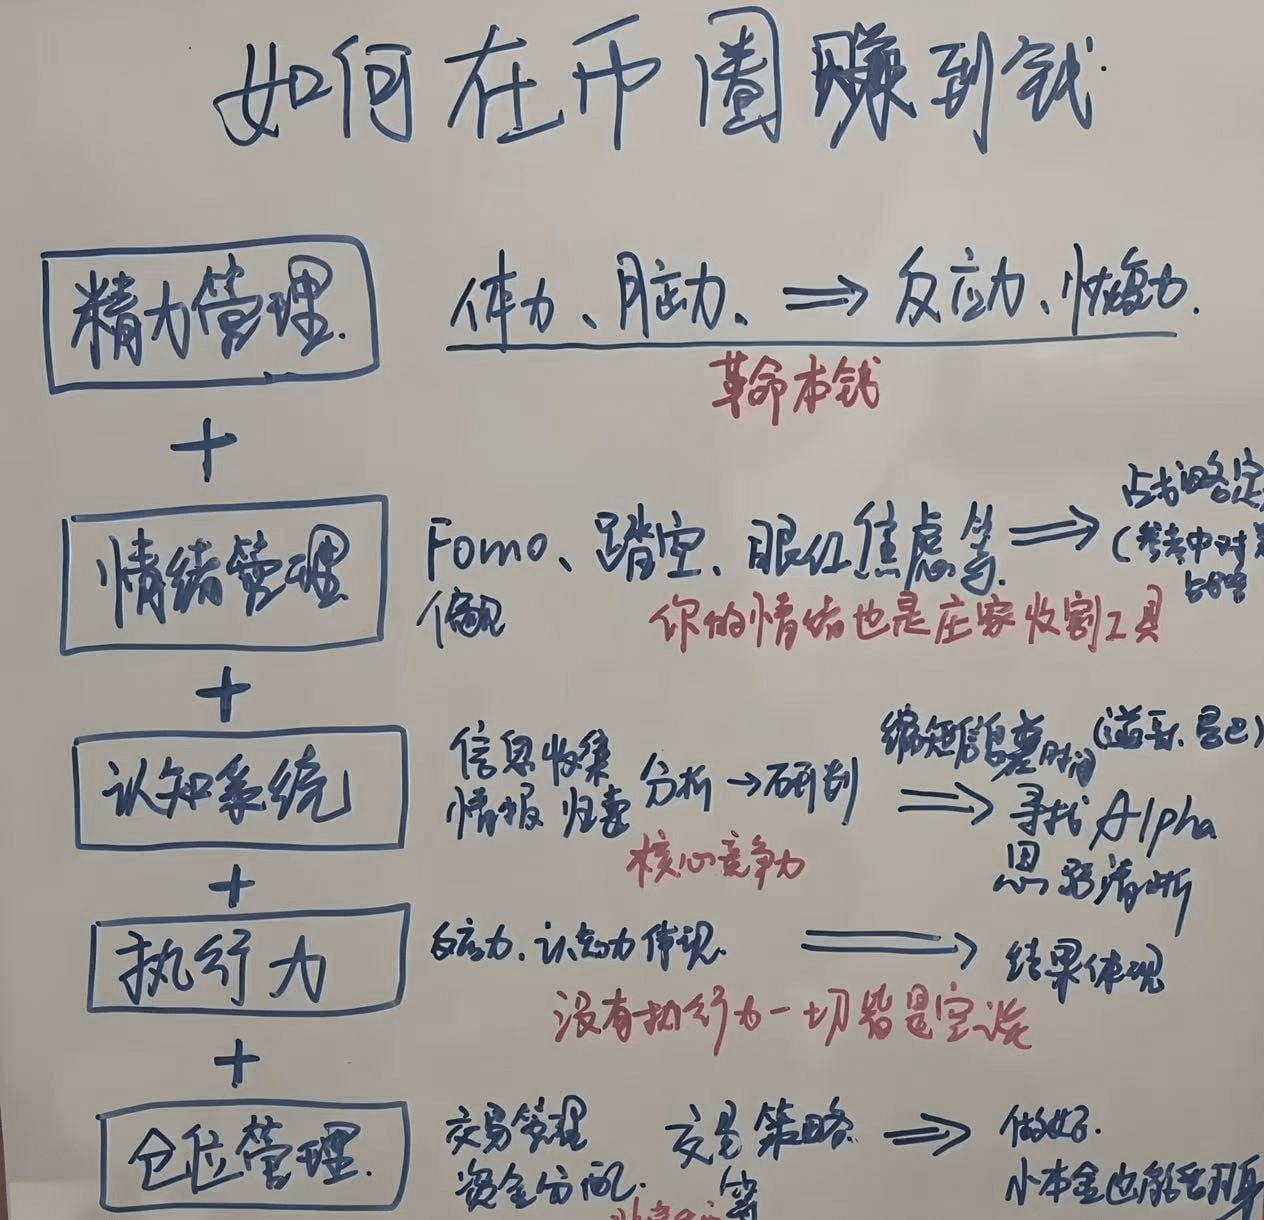 如何在币圈赚到钱.
精力管理.
体力、脑力、⇒ 反应力、恢复力.
革命本钱
+
情绪管理
Fomo、踏空、眼红焦虑等. ⇒
偏见
(参考中对
你的情绪也是庄家收割工具
+
认知系统
信息收集
情报 归类
分析 → 研判 ⇒
缩短信息差时间
寻找 Alpha
思路清晰
核心竞争力
+
执行力
反应力.认知力体现. ⇒ 结果体现
没有执行力一切皆是空谈
+
仓位管理.
交易管理
资金分配.
交易策略
等
⇒ 做好.
小本金也能活翻身